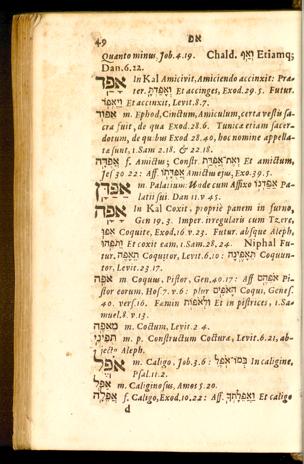 49 אפ
Quanto minus, Job.4.19. Chald. וְאַף Etiamq;
Dan.6.12.
אָפַד In Kal Amicivit, Amiciendo accinxit: Præ-
ter. Et accinges, Exod.29.5. Futur.
Et accinxit, Levit.8.7.
אֵפוֹד m. Ephod, Cinctum, Amiculum, certa vestis sa-
cra fuit, de qua Exod.28.6. Tunica etiam sacer-
dotum, de quibus Exod 28.40, hoc nomine appella-
ta sunt, 1.Sam 2.18. & 22.18.
אֲפֻדָּה f. Amictus; Constr. Et amictum,
Jes 30 22: Aff. אֲפֻדָּתוֹ Amictus ejus, Exo.39.5.
אַפֶּדֶן m. Palatium: Unde cum Affixo אַפַּדְנוֹ Pa-
latii sui. Dan 11.v 45.
אָפָה In Kal Coxit, propriè panem in furno,
Gen 19.3. Imper. irregularis cum Tzere,
אֵפוּ Coquite, Exod.16 v.23. Futur. absque Aleph,
וַתֹּפֵהוּ Et coxit eam, 1.Sam.28.24. Niphal Fu-
tur. תֵּאָפֶה Coquitor, Levit.6.10: תֵּאָפֶינָה Coquun-
tor, Levit.23.17.
אֹפֶה m. Coquus, Pistor, Gen.40.17: Aff אֹפֵהֶם Pi-
stor eorum, Hos.7. v.6: plur הָאֹפִים Coqui, Genes.
40. vers.16. Fœmin וּלְאֹפוֹת Et in pistrices, 1.Sa-
muel.8. v.13.
מַאֲפֵה m. Coctum, Levit. 2 4.
תֻּפִינֵי m. p. Constructum Coctura, Levit.6.21, ab-
jecto Aleph.
אֹפֶל m. Caligo, Job.3.6: בְּמוֹ־אֹפֶל In caligine,
Psal.11.2.
אָפֵל m. Caliginosus, Amos 5.20.
אֲפֵלָה f. Caligo, Exod.10.22: Aff. וַאֲפֵלָתְךָ Et caligo
d